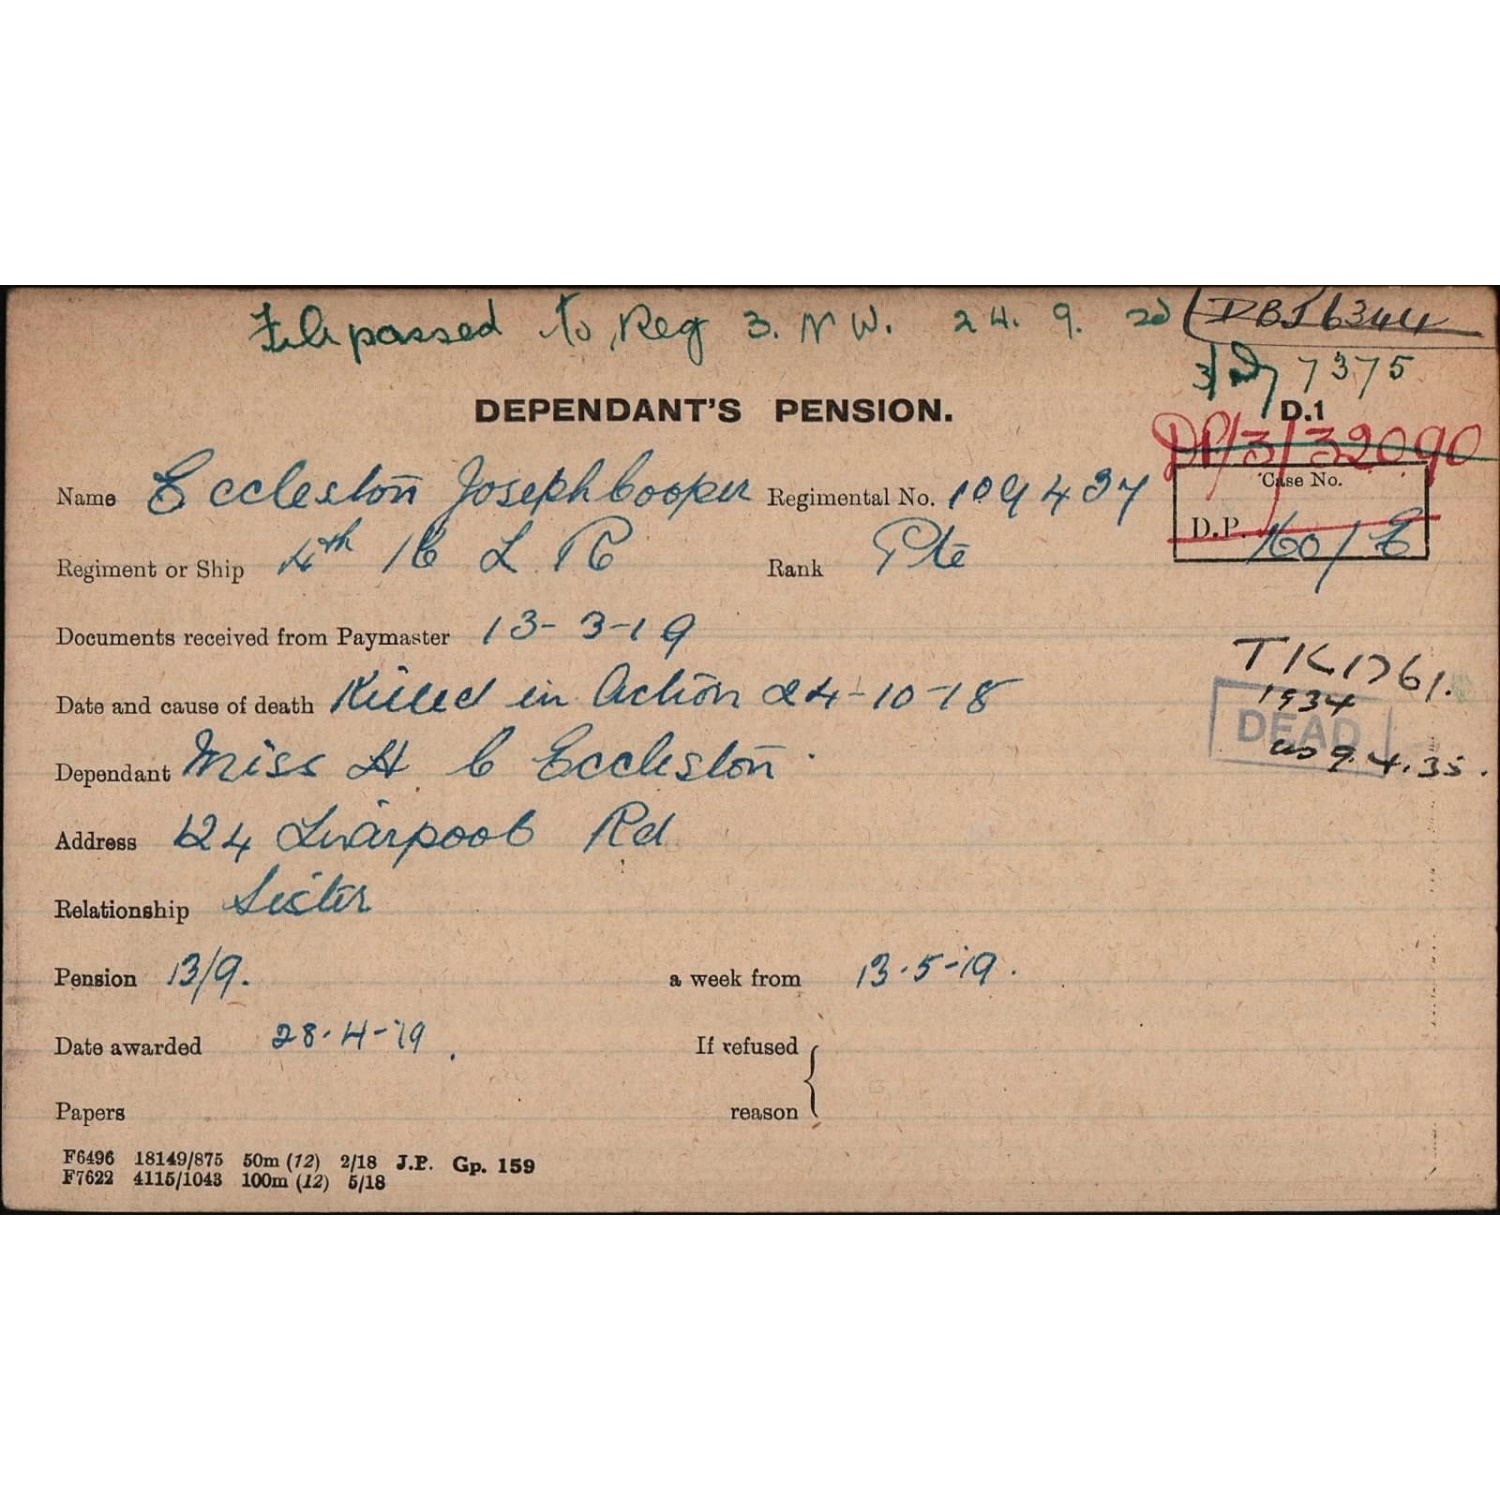 File passed to Reg 3. N W. 24. 9. 20 DBS 6344
3/ 7375
DEPENDANT'S PENSION. D.1
DP/3/32090
Name Eccleston Joseph Cooper Regimental No. 109437
Case No.
Regiment or Ship 4th K L R Rank Pte D.P. 160/E
Documents received from Paymaster 13-3-19
TK1761.
Date and cause of death Killed in Action 24-10-18 1934
DEAD
Dependant Miss H C Eccleston 9.4.35.
Address 124 Liverpool Rd
Relationship Sister
Pension 13/9. a week from 13.5-19.
Date awarded 28.4-19. If refused
Papers reason
F6496 18149/875 50m (12) 2/18 J.P. Gp. 159
F7622 4115/1043 100m (12) 5/18